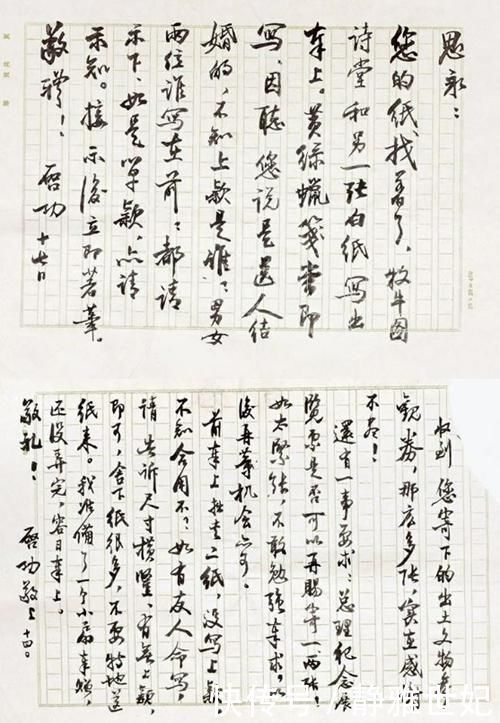 思永：
您的纸、找着了，牧牛图
诗堂和另一张白纸写出
奉上。黄绿蜡笺尚未即
写，因听您说是送人结
婚的，不知上款是谁；男女
两位谁写在前；都请
示下、如是单款，亦请
示知。接示后立即着笔。
敬礼！
启功 十七日
收到您寄下的出土文物
观券，那应多张，实在感
不尽！
还有一事要求：总理纪念展
览票是否可以再赐寄一两张！
如太紧张，不敢勉强奉求。
后再等机会亦可。
前奉上拙画二纸，没写上款
不知合用不？如有友人命写，
请告诉尺寸横竖、有无上款，
即可，舍下纸很多，不要特地送
纸来。我准备了一个小扇奉赠，
还没弄完，容日奉上。
敬礼！
启功敬上 十四日
快传号/静雅世妃